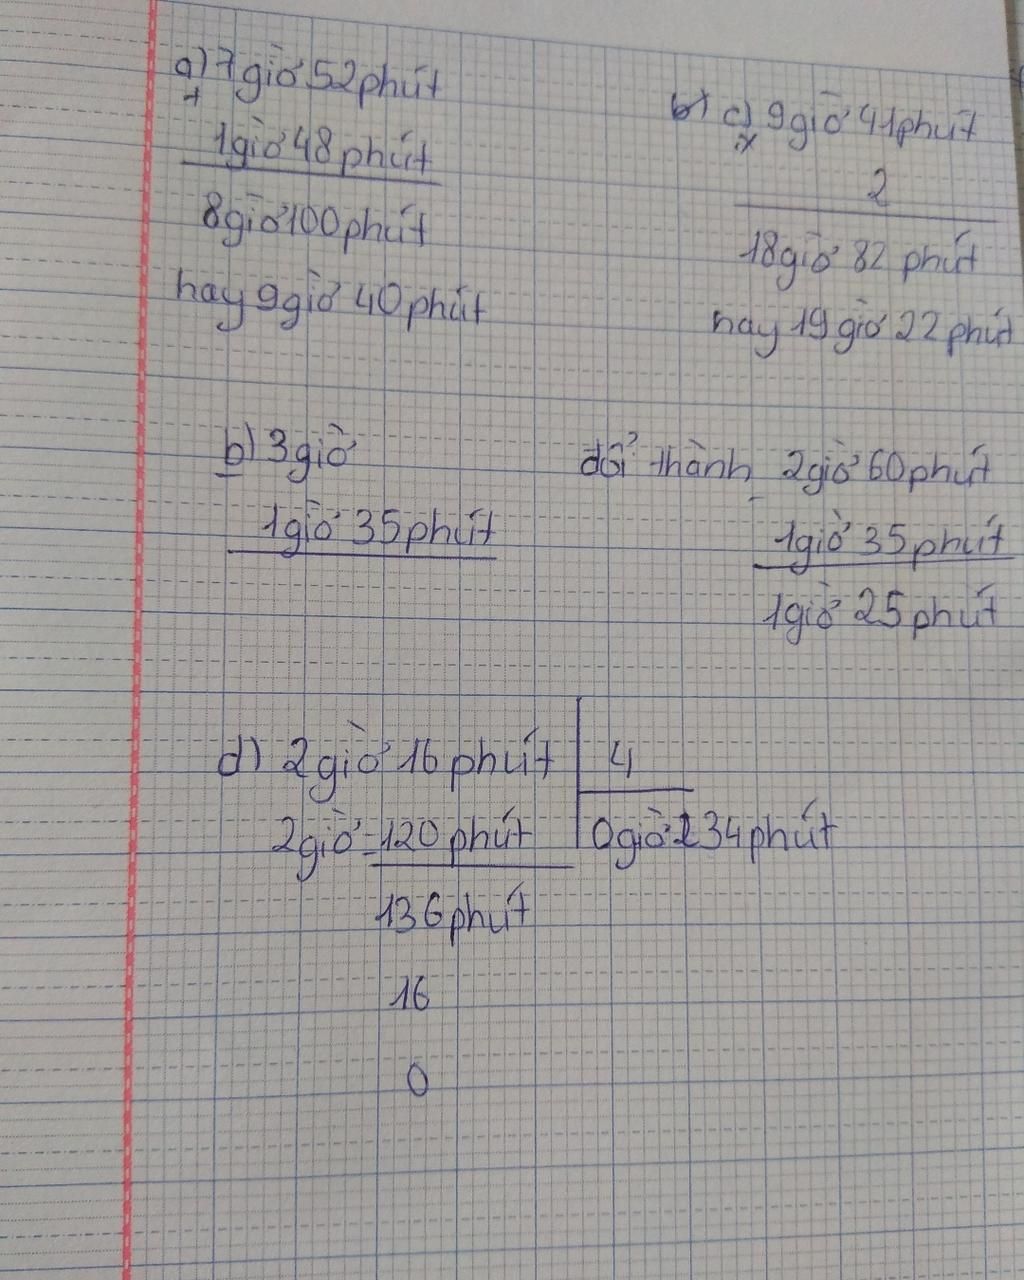 a) 7giờ 52phút
+
1giờ 48 phút
8giờ 100phút
hay 9giờ 40phút
c) 9giờ 41phút
x
2
18giờ 82 phút
hay 19 giờ 22 phút
b) 3giờ
-
1giờ 35phút
đổi thành 2giờ 60phút
-
1giờ 35phút
1giờ 25phút
d) 2giờ 16phút 4
2giờ = 120phút 0giờ 34phút
136phút
16
0